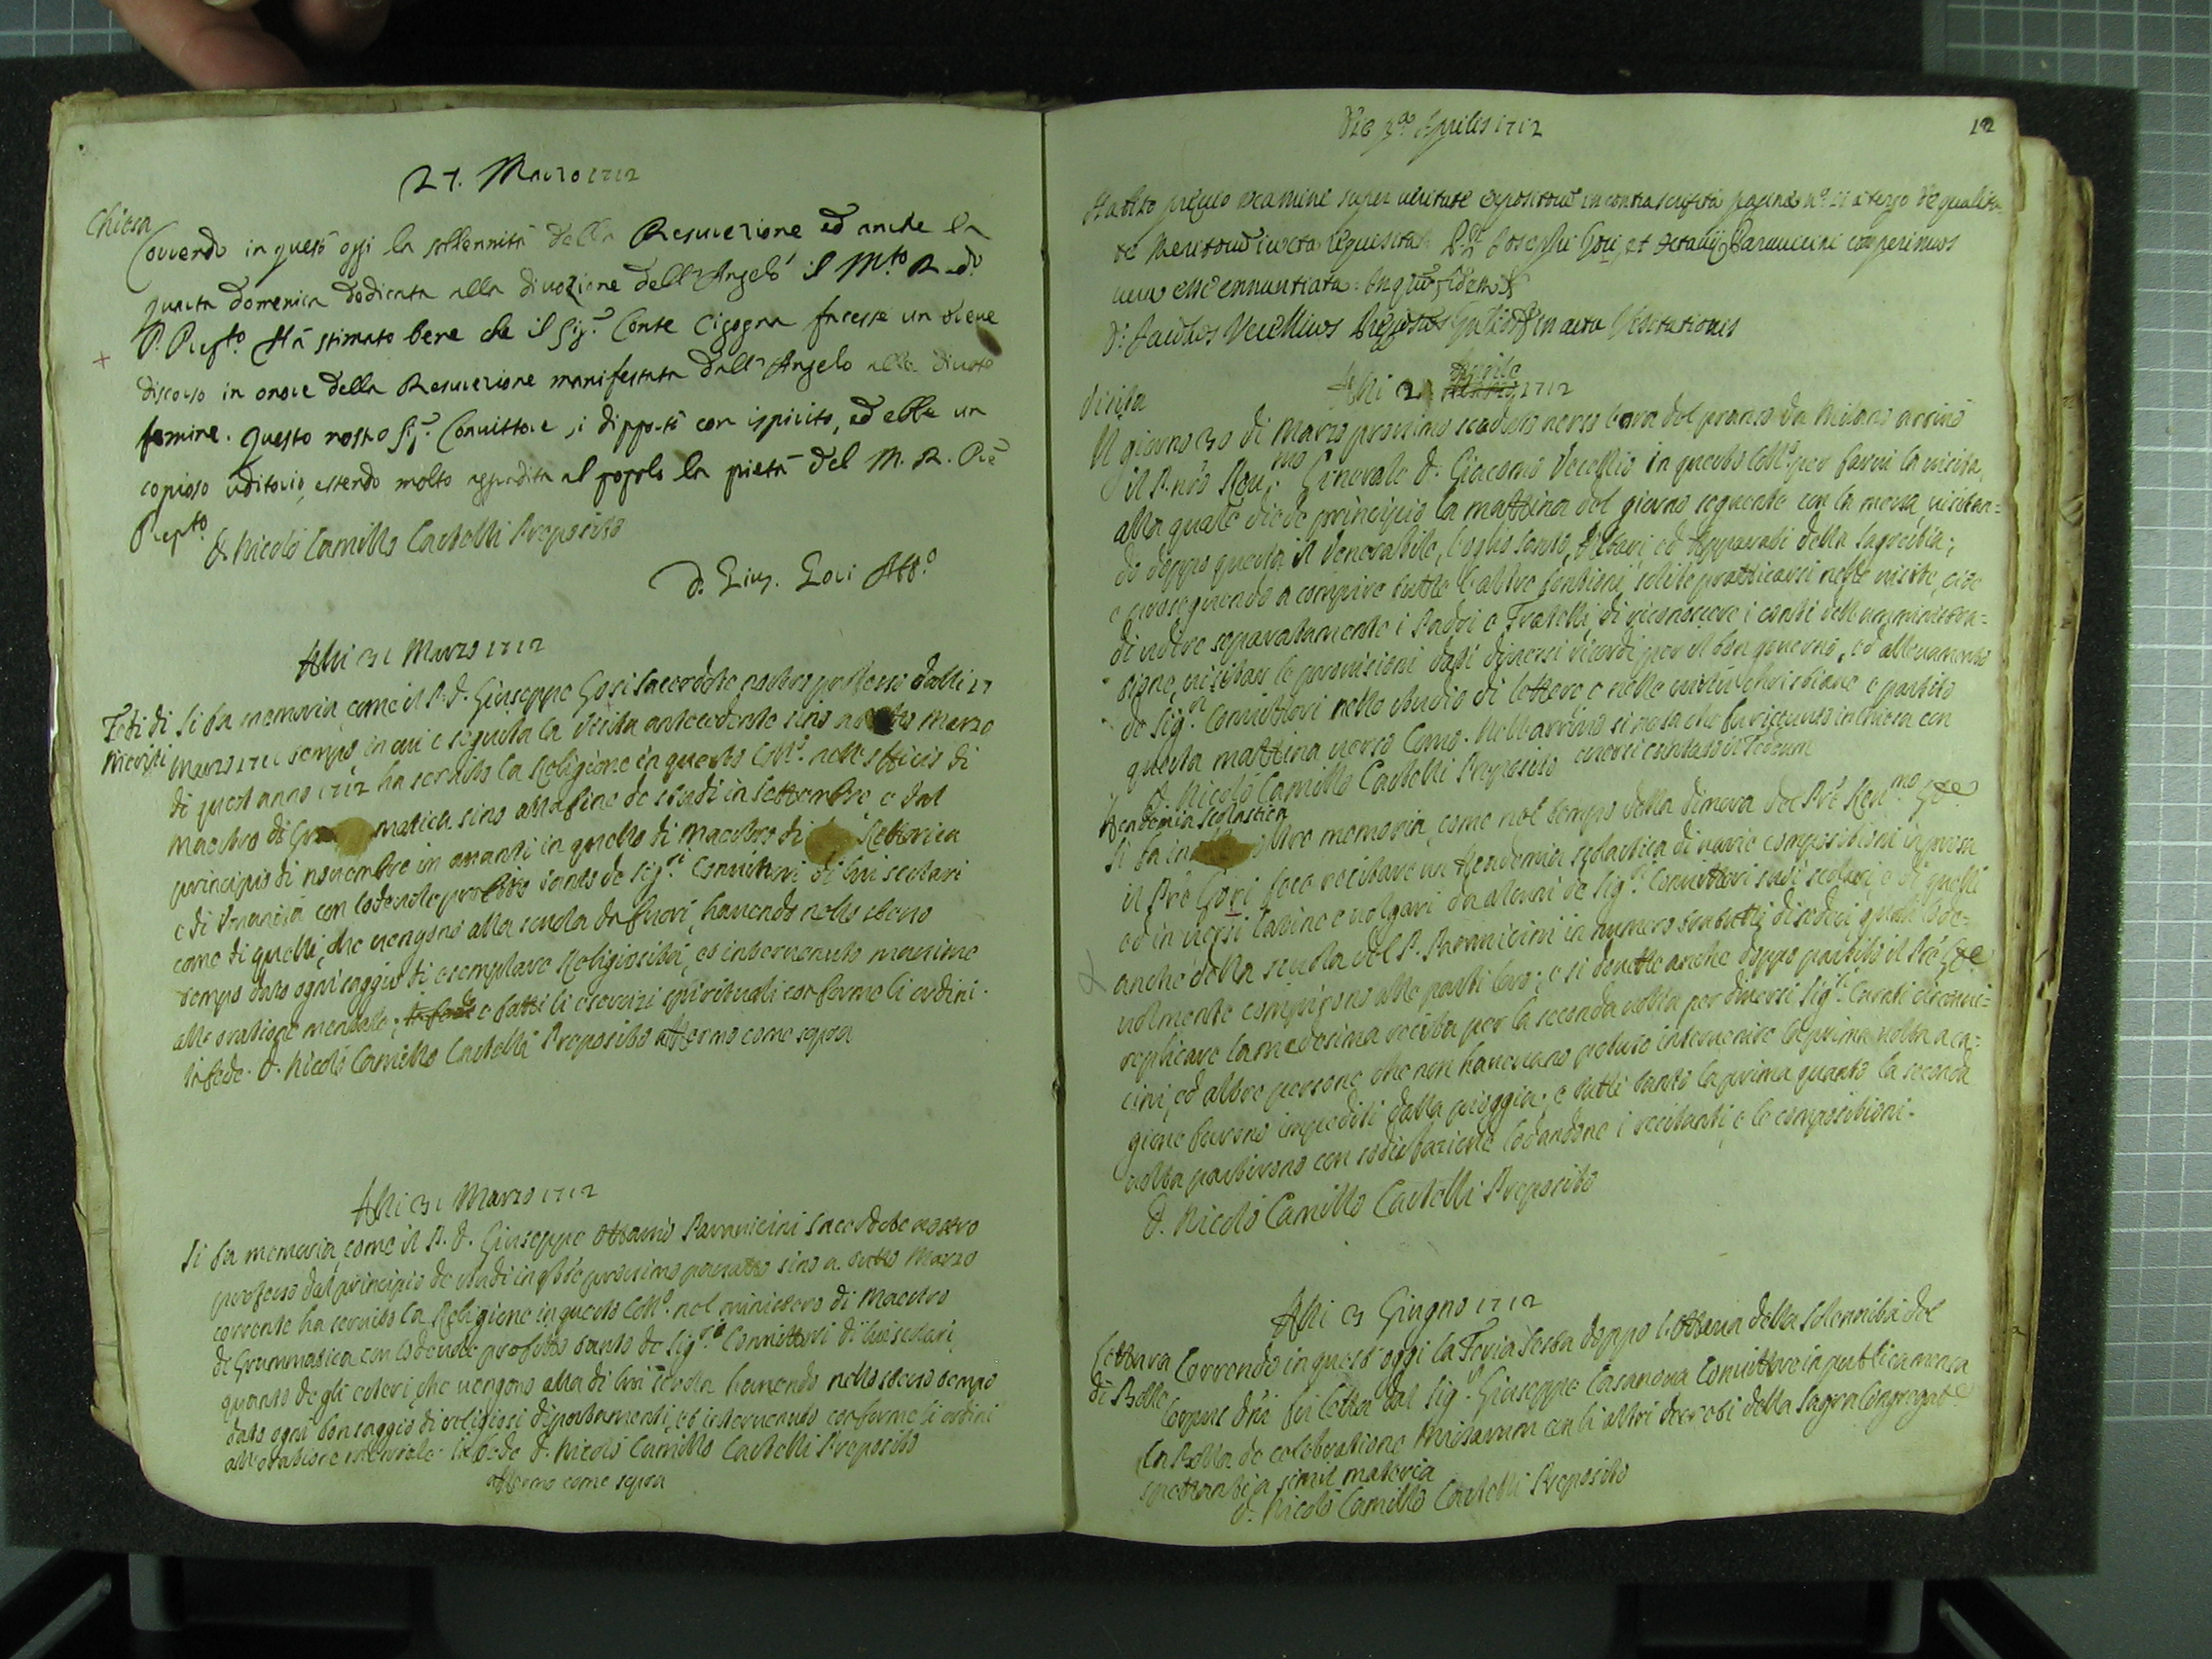 27. Marzo 1712
Chiesa
Correndo in questo oggi la sollennità della Resurrezione ed anche la
quarta domenica dedicata alla divozione dell'Angelo il M.to R.do
P. Prep.to Hà stimato bene che il Sig.r Conte Cigogna facesse un breve
discorso in onore della Resurrezione manifestata dall'Angelo alle divote
femine. Questo nostro Sig.r Convittore si diportò con ispirito, ed ebbe un
copioso uditorio, essendo molto aggradita al popolo la pietà del M. R. Pre
Prep.to
D. Nicolò Camillo Castelli Preposito
D. Gius. Gori Att.o
Alli 31 Marzo 1712
Fedi di
meriti
Si fa memoria come il P. D. Giuseppe Gori Sacerdote nostro professo dalli 17
Marzo 1711 tempo, in cui è seguita la visita antecedente sino a Marzo
di quest'anno 1712 ha servito la Religione in questo Coll.o nell'officio di
Maestro di Gramatica sino alla fine de studi in Settembre e dal
principio di novembre in avanti in quello di Maestro di Rettorica
e di Umanità con lodevole profitto tanto de Sig.ri Convittori di lui scolari
come di quelli, che vengono alla scuola da fuori, havendo nello stesso
tempo dato ogni saggio di esemplare Religiosità, ed intervenuto massime
alle oratione mentale, e fatti li esercizi spirituali conforme li ordini.
In fede. D. Nicolò Camillo Castelli Preposito affermo come sopra
Alli 31 Marzo 1712
Si fa memoria, come il P. D. Giuseppe Ottavio Paravicini Sacerdote nostro
professo dal principio de studi in 9bre prossimo passato sino a tutto Marzo
corrente ha servito la Religione in questo Coll.o nel ministero di Maestro
de Grammatica con lodevole profitto tanto de Sig.ri Convittori di lui scolari,
quanto degli esteri, che vengono alla di lui scuola havendo nello stesso tempo
dato ogni bon saggio di religiosi diportamenti, ed intervenuto conforme li ordini
all'oratione mentale. In fede D. Nicolò Camillo Castelli Preposito
affermo come sopra
12
Die 2.da Aprilis 1712
Habito previo examine super veritate expositorum in contrascripta pagina n.o 11 a tergo de qualita-
te meritorum iuxta requisita Josephi Gorij, et Octavij Paravicini comperimus
vera esse ennuntiata: In quorum fidem
D. Jacobus Vecellius Prepositus Gnalis in actu Visitationis
Visita
Alli 2 Aprile 1712
Il giorno 30 di Marzo prossimo scaduto verso l'ora del pranzo da Milano arrivò
il P. nro Rev.mo Generale D. Giacomo Vecellio in questo Coll.o per farvi la visita,
alla quale diede principio la mattina del giorno seguente con la messa, visitan=
do doppo questa il Venerabile, l'oglio santo, Altari, ed Apparati della Sagrestia;
e proseguendo a compire tutte l'altre fontioni solite pratticarsi nelle visite, cioè
di udire separatamente i Padri e Fratelli, di riconoscere i conti dell'amministra=
tione, visitar le provisioni dati diversi ricordi per il bon governo, ed allevamento
de Sig.ri Convittori nello studio di lettere e nelle virtù christiane è partito
questa mattina verso Como. Nell'arrivo si nota che fu ricevuto in chiesa con
D. Nicolò Camillo Castelli Preposito
Academia Scolastica
Si fa inoltre memoria, come nel tempo della dimora del Pre Rev.mo Gnle
il Pre Gori fece recitare un'Academia scolastica di varie compositioni in prosa
ed in versi latine e volgari da alcuni de Sig.ri Convittori suoi scolari, e di quelli
anche della scuola del P. Paravicini in numero fra tutti di sedici quali lode=
volmente compirono alle parti loro; e si dovette anche doppo partito il Pre Gnle
replicare la medesima recita per la seconda volta per diversi Sig.ri Curati circonvi=
cini, ed altre persone che non havevano potuto intervenire la prima volta a ca=
gione furono impediti dalla pioggia; e tutti tanto la prima quanto la seconda
volta partirono con sodisfazione lodandone i recitanti, e le compositioni.
D. Nicolò Camillo Castelli Preposito
Alli 3 Giugno 1712
Lettura
di Bolle
Correndo in quest'oggi la Feria Sesta doppo l'ottava della Solennità del
Corpus Dñi fu letta dal Sig.r Giuseppe Casanova Convittore in publica mensa
la Bolla de celebratione Missarum con li altri decreti della Sagra Congregat.e
spettanti a simil materia
D. Nicolò Camillo Castelli Preposito